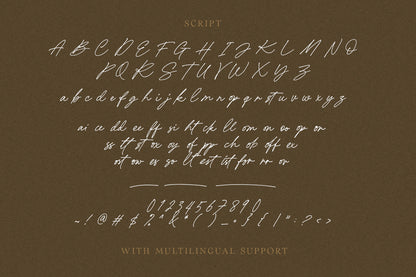 SCRIPT
A B C D E F G H I J K L M N O
P Q R S T U V W X Y Z
a b c d e f g h i j k l m n o p q r s t u v w x y z
ai ce dd ee ff si ht ck ll om on oo op on
ss tt st ox ay of pp ch ob off ex
ot ow es so lt est ist for rr on
0 1 2 3 4 5 6 7 8 9 0
~ ! @ # $ % ^ & * ( ) _ + } { | " : ? < >
WITH MULTILINGUAL SUPPORT